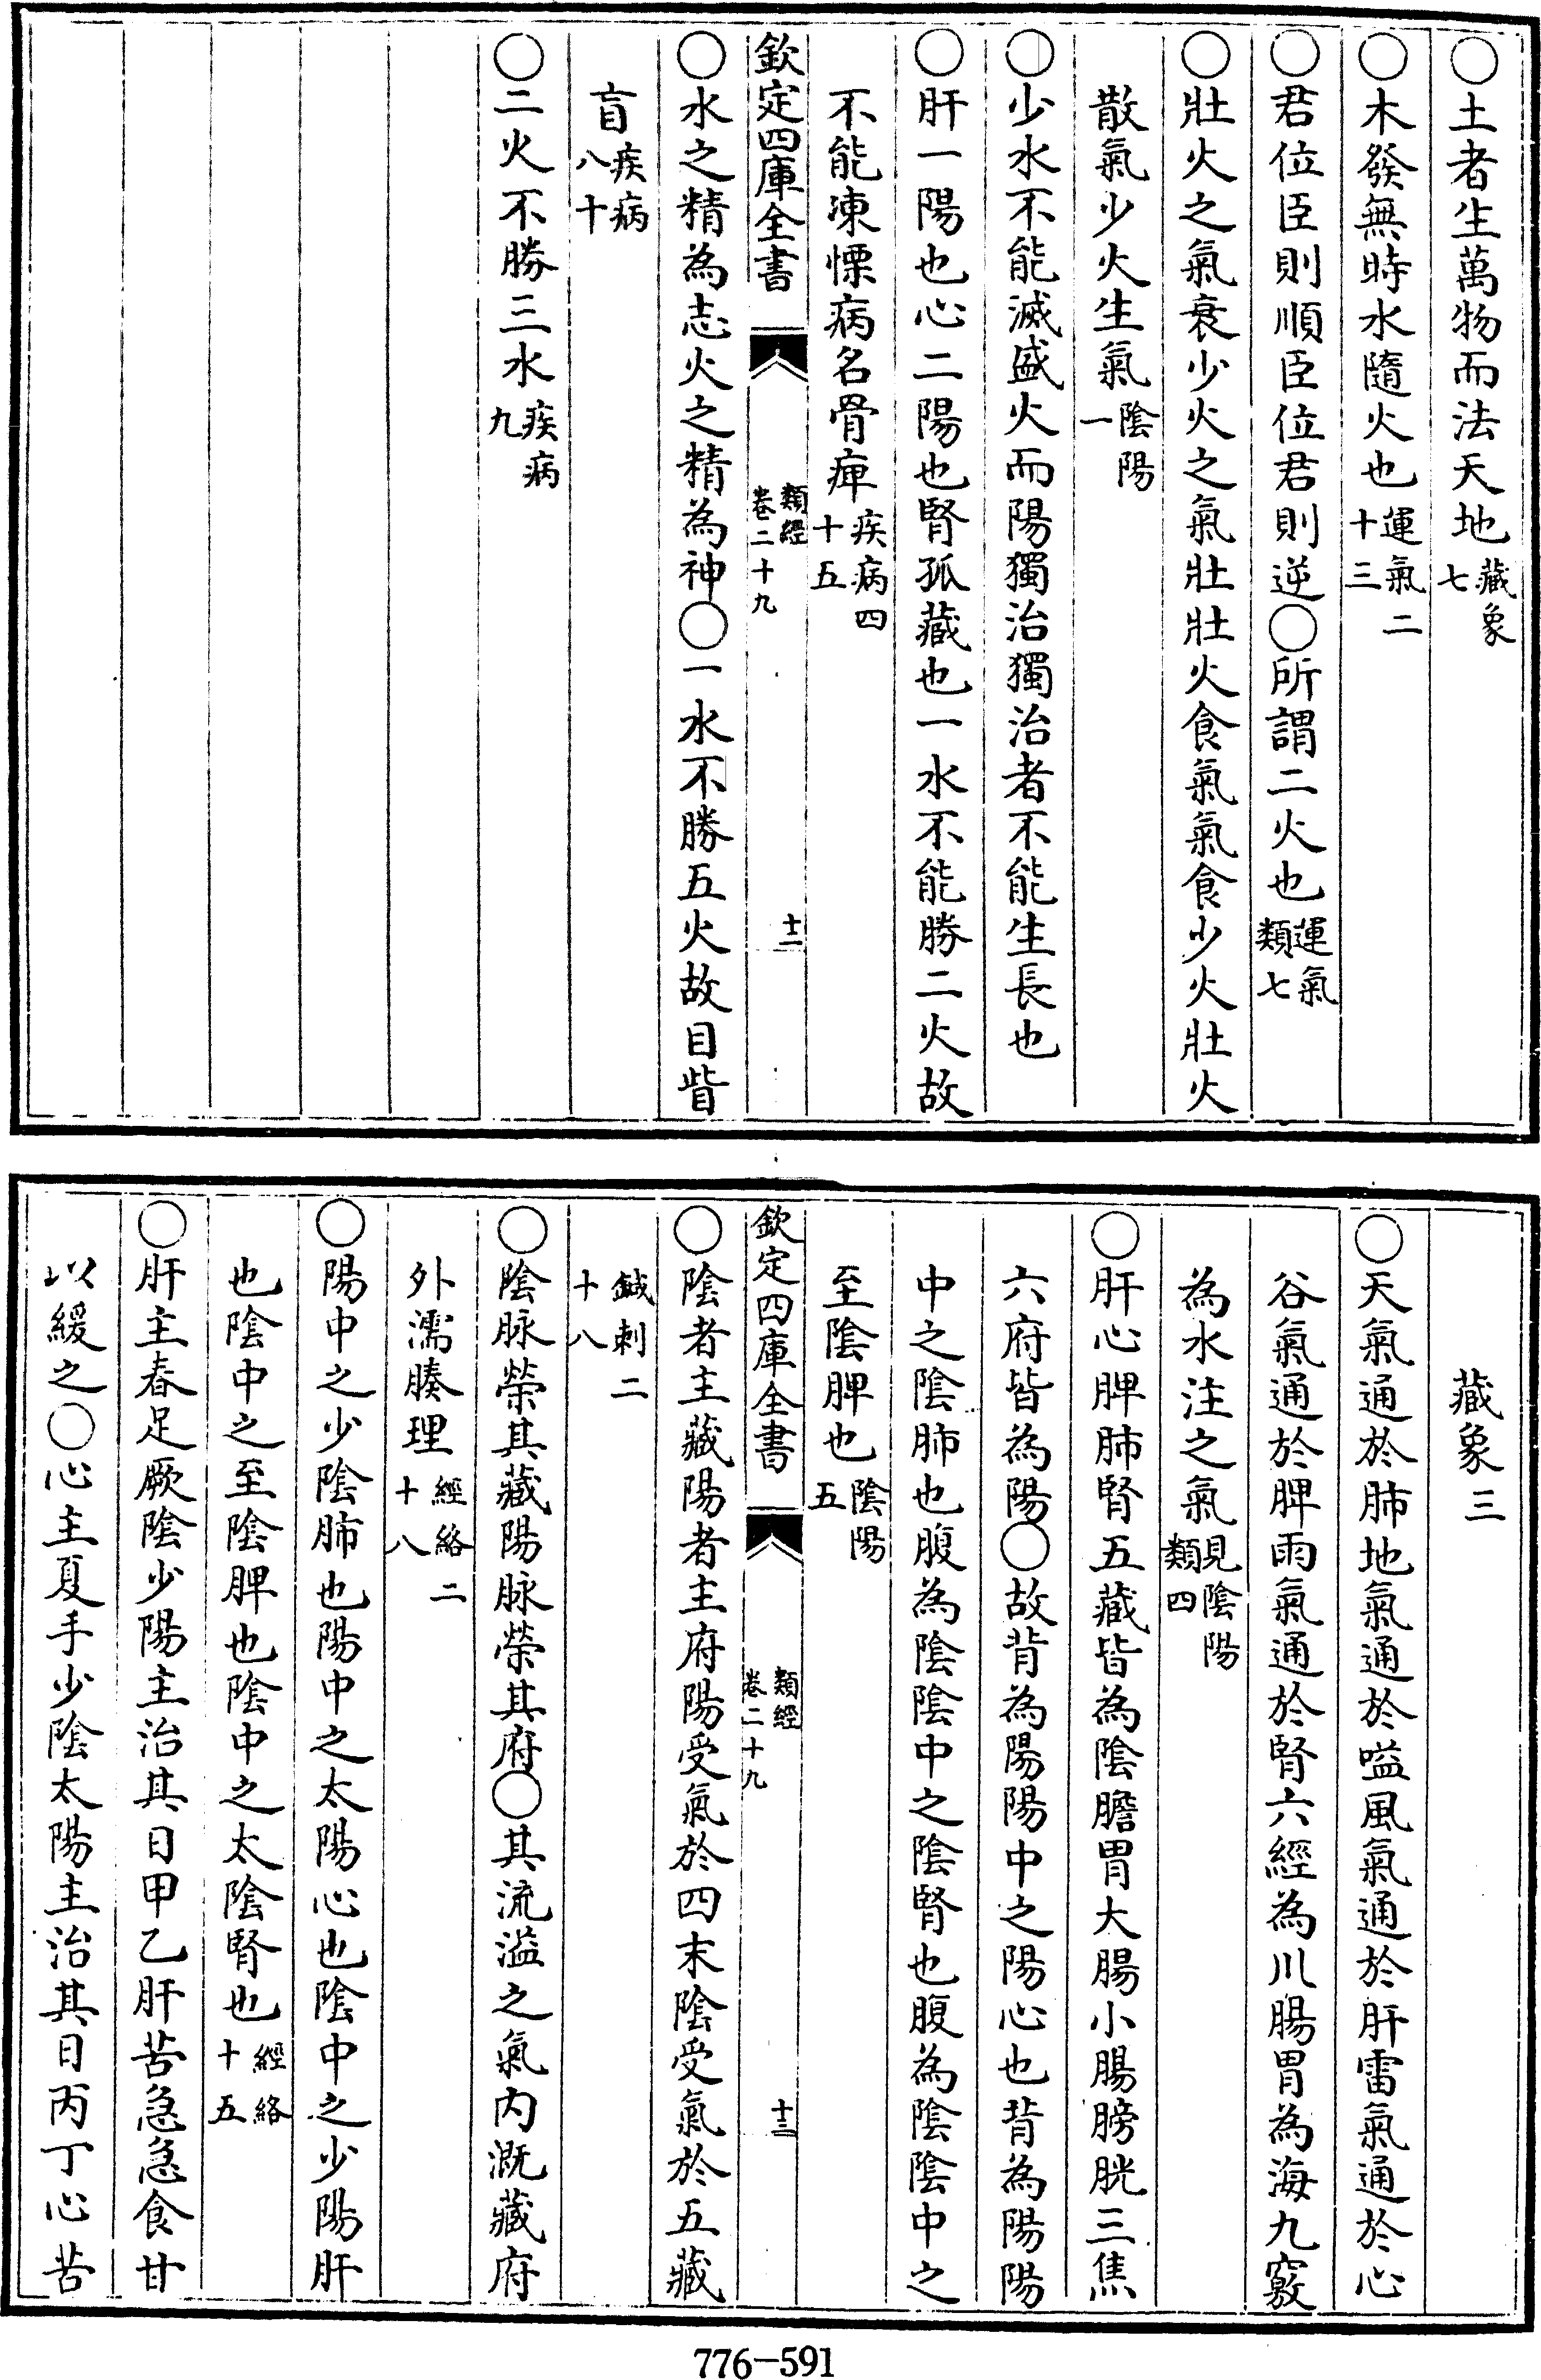 ○土者生萬物而法天地藏象七
○木發無時水隨火也運氣二十三
○君位臣則順臣位君則逆○所謂二火也運氣類七
○壯火之氣衰少火之氣壯壯火食氣氣食少火壯火
散氣少火生氣陰陽一
○少水不能滅盛火而陽獨治獨治者不能生長也
○肝一陽也心二陽也腎孤藏也一水不能勝二火故
不能凍慄病名骨痺疾病四十五
欽定四庫全書 類經卷二十九 十二
○水之精為志火之精為神○一水不勝五火故目眥
盲疾病八十
○二火不勝三水疾病九
藏象三
○天氣通於肺地氣通於嗌風氣通於肝雷氣通於心
谷氣通於脾雨氣通於腎六經為川腸胃為海九竅
為水注之氣見陰陽類四
○肝心脾肺腎五藏皆為陰膽胃大腸小腸膀胱三焦
六府皆為陽○故背為陽陽中之陽心也背為陽陽
中之陰肺也腹為陰陰中之陰腎也腹為陰陰中之
至陰脾也陰陽五
欽定四庫全書 類經卷二十九 十三
○陰者主藏陽者主府陽受氣於四末陰受氣於五藏
鍼刺二十八
○陰脉榮其藏陽脉榮其府○其流溢之氣內溉藏府
外濡腠理經絡二十八
○陽中之少陰肺也陽中之太陽心也陰中之少陽肝
也陰中之至陰脾也陰中之太陰腎也經絡十五
○肝主春足厥陰少陽主治其日甲乙肝苦急急食甘
以緩之○心主夏手少陰太陽主治其日丙丁心苦
776-591